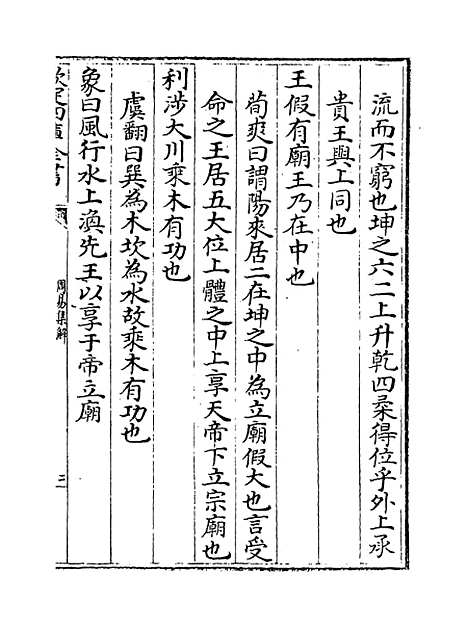 流而不窮也坤之六二上升乾四柔得位乎外上承
貴王與上同也
王假有廟王乃在中也
荀爽曰謂陽來居二在坤之中為立廟假大也言受
命之王居五大位上體之中上享天帝下立宗廟也
利涉大川乘木有功也
虞翻曰巽為木坎為水故乘木有功也
象曰風行水上渙先王以享于帝立廟
欽定四庫全書
周易集解
三